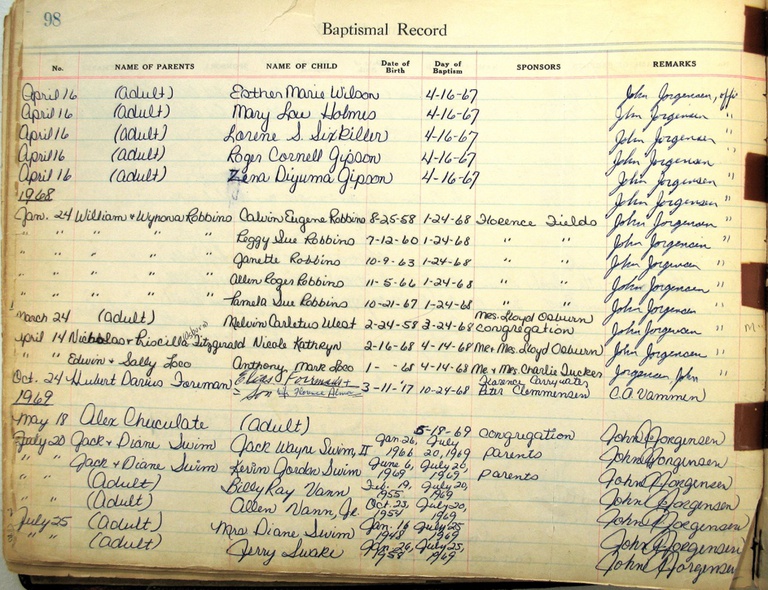 98
Baptismal Record
No. NAME OF PARENTS NAME OF CHILD Date of Birth Day of Baptism SPONSORS REMARKS
April 16 (adult) Esther Marie Wilson 4-16-67 John Jorgensen, offi
April 16 (adult) Mary Lou Holmes 4-16-67 John Jorgensen "
April 16 (adult) Lorene S. Sixkiller 4-16-67 John Jorgensen "
April 16 (adult) Roger Cornell Gipson 4-16-67 John Jorgensen "
April 16 (adult) Zena Diyuma Gipson 4-16-67 John Jorgensen "
1968
Jan. 24 William & Wynona Robbins Calvin Eugene Robbins 8-25-58 1-24-68 Florence Fields John Jorgensen "
" " " " " Peggy Sue Robbins 7-12-60 1-24-68 " " John Jorgensen "
" " " " " Janette Robbins 10-9-63 1-24-68 " " John Jorgensen "
" " " " " Allen Roger Robbins 11-5-66 1-24-68 " " John Jorgensen "
" " " " " Pamela Sue Robbins 10-21-67 1-24-68 " " John Jorgensen "
March 24 (adult) Melvin Carletus West 2-24-58 3-24-68 Mrs. Lloyd Osburn congregation John Jorgensen "
April 14 Nicholas & Priscilla Osburn Fitzgerald Nicole Kathryn 2-16-68 4-14-68 Mr & Mrs. Lloyd Osburn John Jorgensen "
" " Edwin & Sally Loco Anthony Mark Loco 1- -68 4-14-68 Mr & Mrs. Charlie Tucker Jorgensen, John
Oct. 24 Hubert Darius Foreman Son 3-11-'17 10-24-68 Peter Clemmensen C.A. Vammen
1969
May 18 Alex Chuculate (adult) 5-18-69 congregation John Jorgensen
July 20 Jack & Diane Swim Jack Wayne Swim, II Jan 26, 1966 July 20, 1969 Parents John Jorgensen
" " Jack & Diane Swim Kevin Jordan Swim June 6, 1969 July 20, 1969 Parents John Jorgensen
" " (Adult) Billy Ray Vann Feb. 19, 1955 July 20, 1969 John Jorgensen
" " (Adult) Allen Vann, Jr. Oct. 23, 1954 July 20, 1969 John Jorgensen
July 25 (Adult) Mrs Diane Swim Jan. 18 1948 July 25 1969 John Jorgensen
" " (adult) Jerry Swake Jan. 26, 1958 July 25, 1969 John Jorgensen